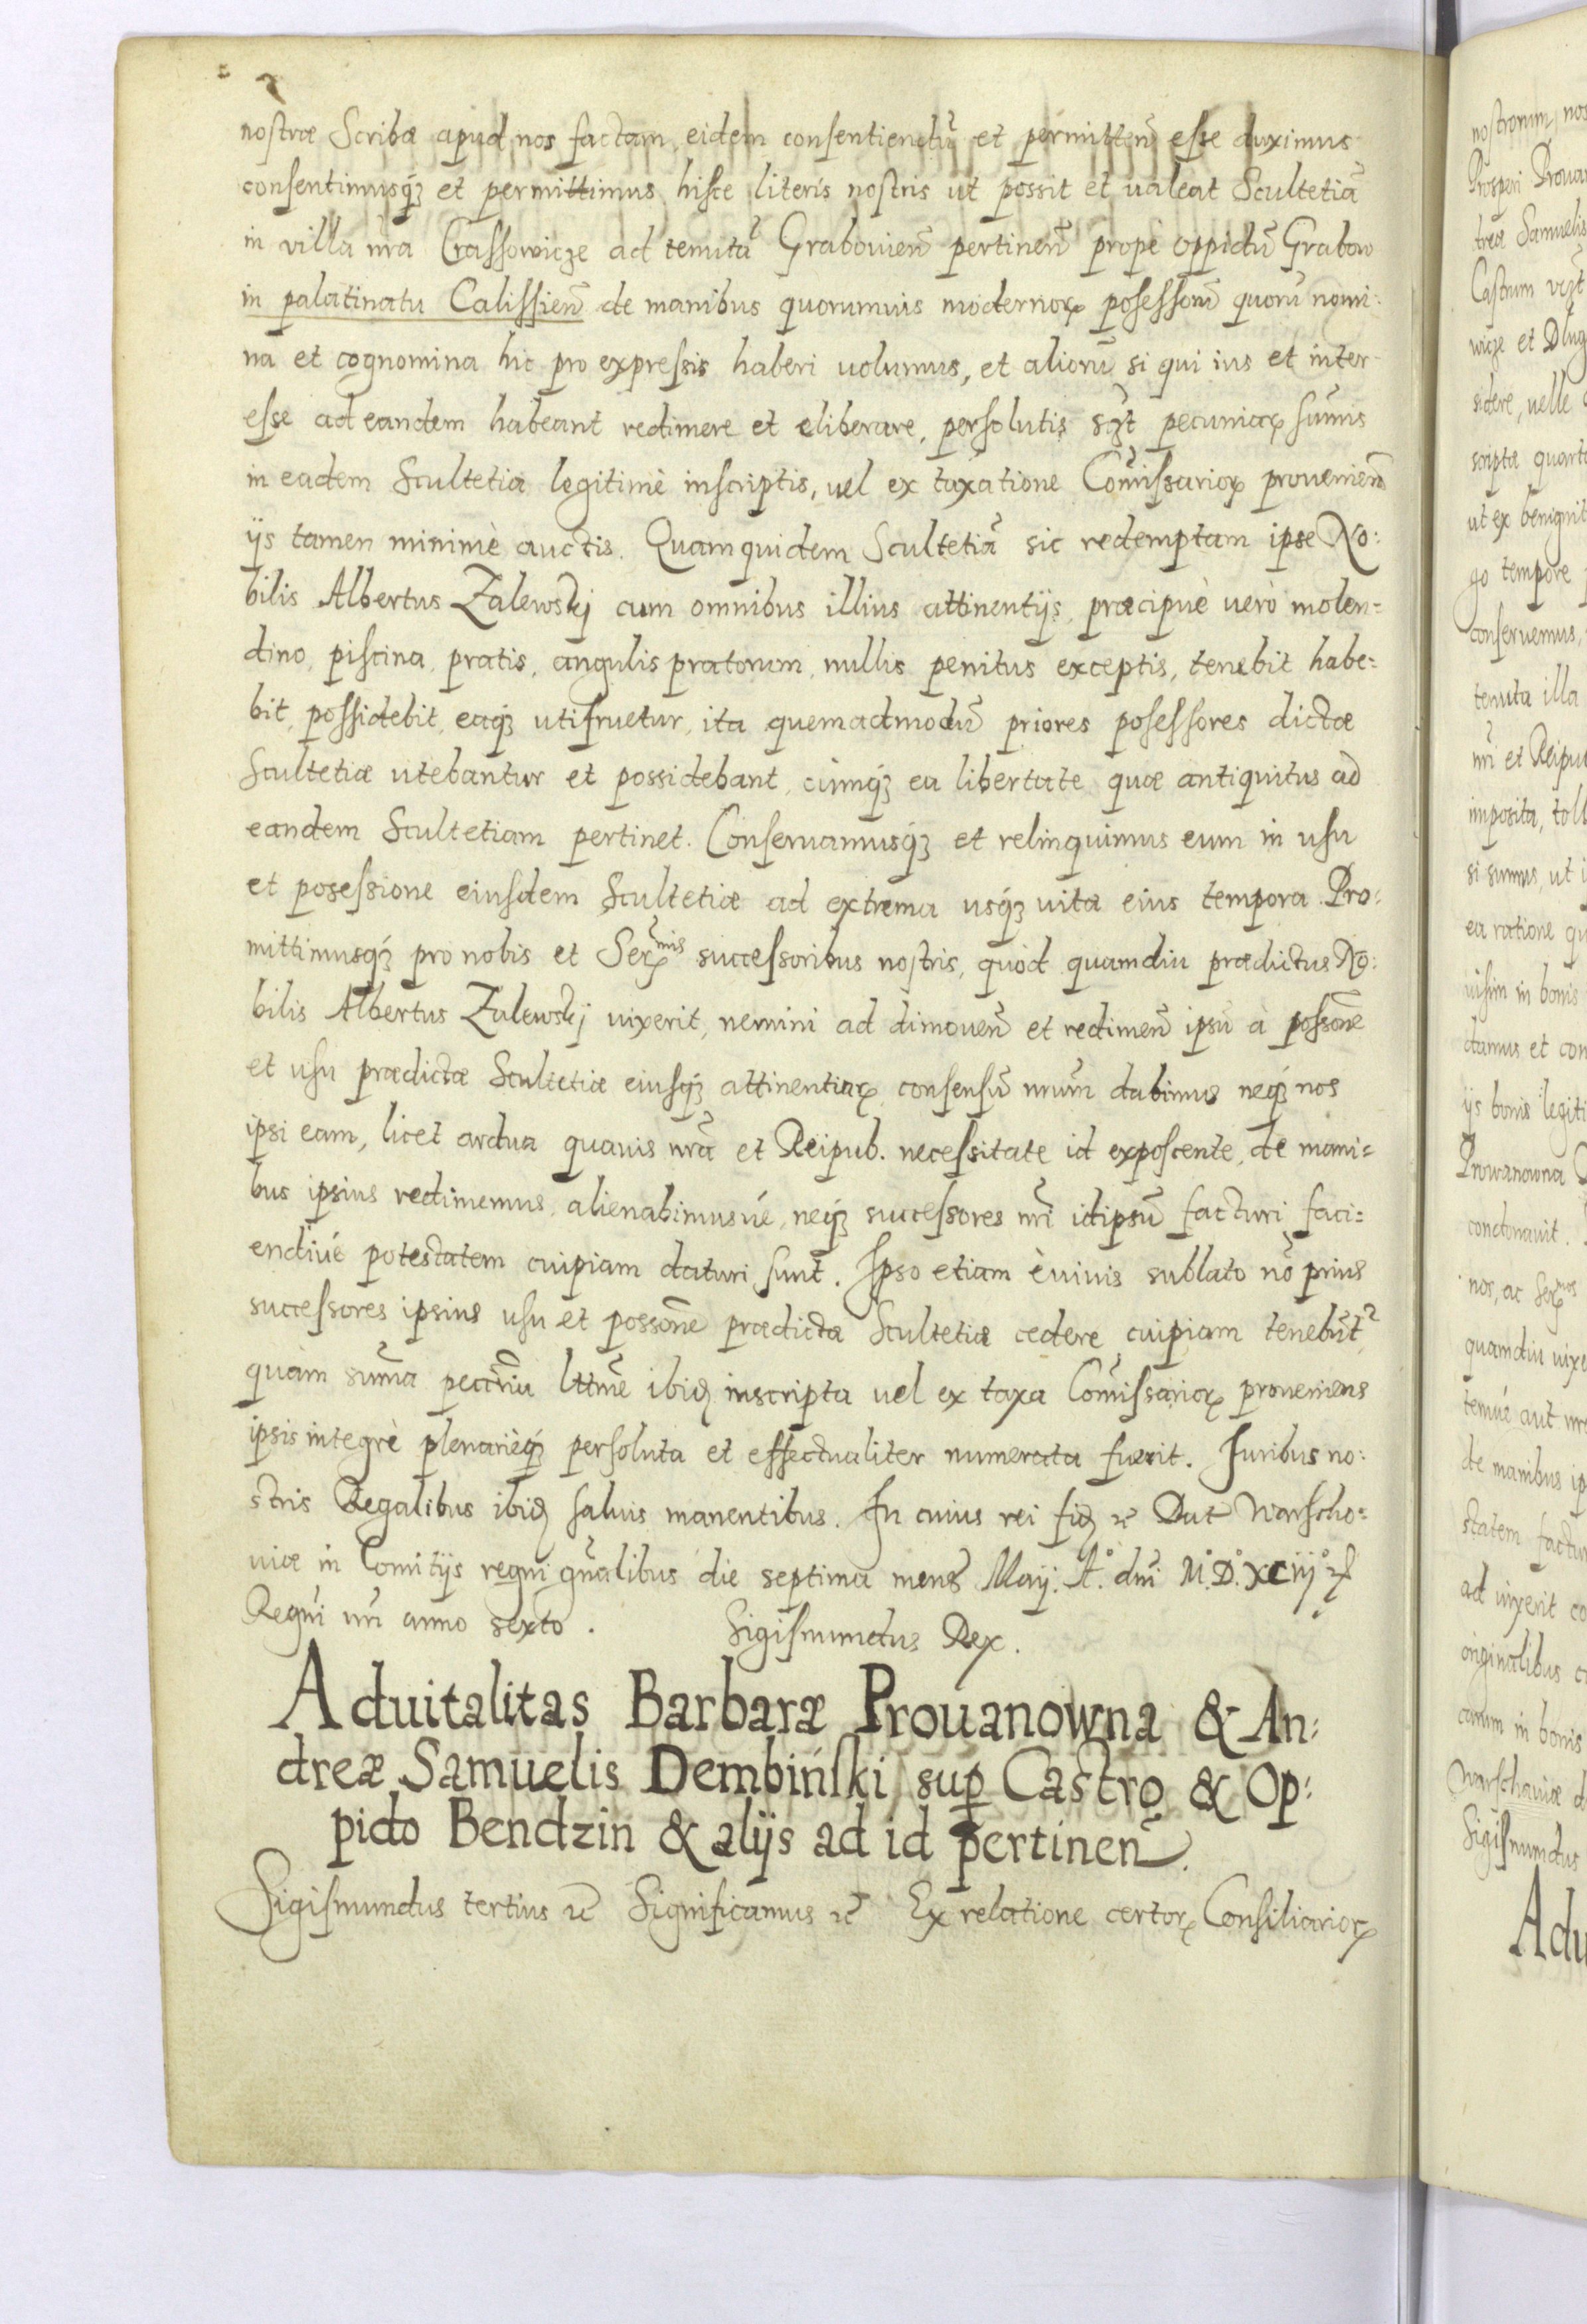 nostræ Scribæ apud nos factam, eidem consentiendũ et permitteñ esse duximus
consentimusq́ꝫ et permittimus hisce literis nostris ut possit et ualeat Scultetiã
in villa nr̃a Crassowicze ad tenutã Grabouieñ pertineñ propè oppidũ Grabow
in palatinatu Calissieñ de manibus quorumuis modernoꝝ posessorũ quorũ nomi:
na et cognomina hic pro expressis haberi uolumus, et aliorũ si qui ius et inter-
esse ad eandem habeant redimere et eliberare, persolutis sqt̃ pecuniaꝝ sum̃is
in eadem Scultetia legitimè inscriptis, uel ex taxatione Com̃issarioꝝ prouenieñ
ijs tamen minimè auctis. Quam quidem Scultetiã sic redemptam ipse No:
bilis Albertus Zalewskj cum omnibus illius attinentijs, præcipuè uerò molen=
dino, piscina, pratis, angulis pratorum, nullis penitus exceptis, tenebit habe=
bit, possidebit, eaq́ꝫ utifruetur, ita quemadmodũ priores posessores dictæ
Scultetiæ utebantur et possidebant, cùmq́ꝫ ea libertate quæ antiquitus ad
eandem Scultetiam pertinet. Conseruamusq́ꝫ et relinquimus eum in usu
et posessione eiusdem Scultetiæ ad extrema usq́ꝫ uitæ eius tempora. Pro:
mittimusq́ꝫ pro nobis et Serꝝmis successoribus nostris, quòd quamdiu prædictus No:
bilis Albertus Zalewskj uixerit, nemini ad dimoueñ et redimeñ ipsũ à possoñe
et usu prædictæ Scultetiæ eiusq́ꝫ attinentiaꝝ consensũ nr̃um dabimus neq́ꝫ nos
ipsi eam, licet ardua quauis nr̃a et Reipub. necessitate id exposcente, de mani=
bus ipsius redimemus, alienabimusué, neq́ꝫ successores nr̃i idipsũ facturi faci=
endiué potestatem cuipiam daturi sunt. Ipso etiam è uiuis sublato nõ prius
successores ipsius usu et possoñe prædictæ Scultetiæ cedere cuipiam tenebũt²
quàm sum̃a pecc̃ria lttm̃e ibiꝺ inscripta uel ex taxa Com̃issarioꝝ proueniens
ipsis integrè plenarièq́ꝫ persoluta et effectualiter numerata fuerit. Iuribus no:
stris Regalibus ibiꝺ saluis manentibus. In cuius rei fiꝺ &c̃ Dat Warscho=
uiæ in Comitijs regni gñalibus die septima mens̃ Maij. A.° dñi M.° D.° XCiij° &c̃
Regñi nr̃i anno sexto. Sigismundus Rex.
Aduitalitas Barbaræ Prouanowna & An:
dreæ Samuelis Dembiński sup̱ Castro & Op:
pido Bendzin & alijs ad id pertineñ.
Sigismundus tertius &c̃ Significamus &c̃ Ex relatione certoꝝ Consiliarioꝝ